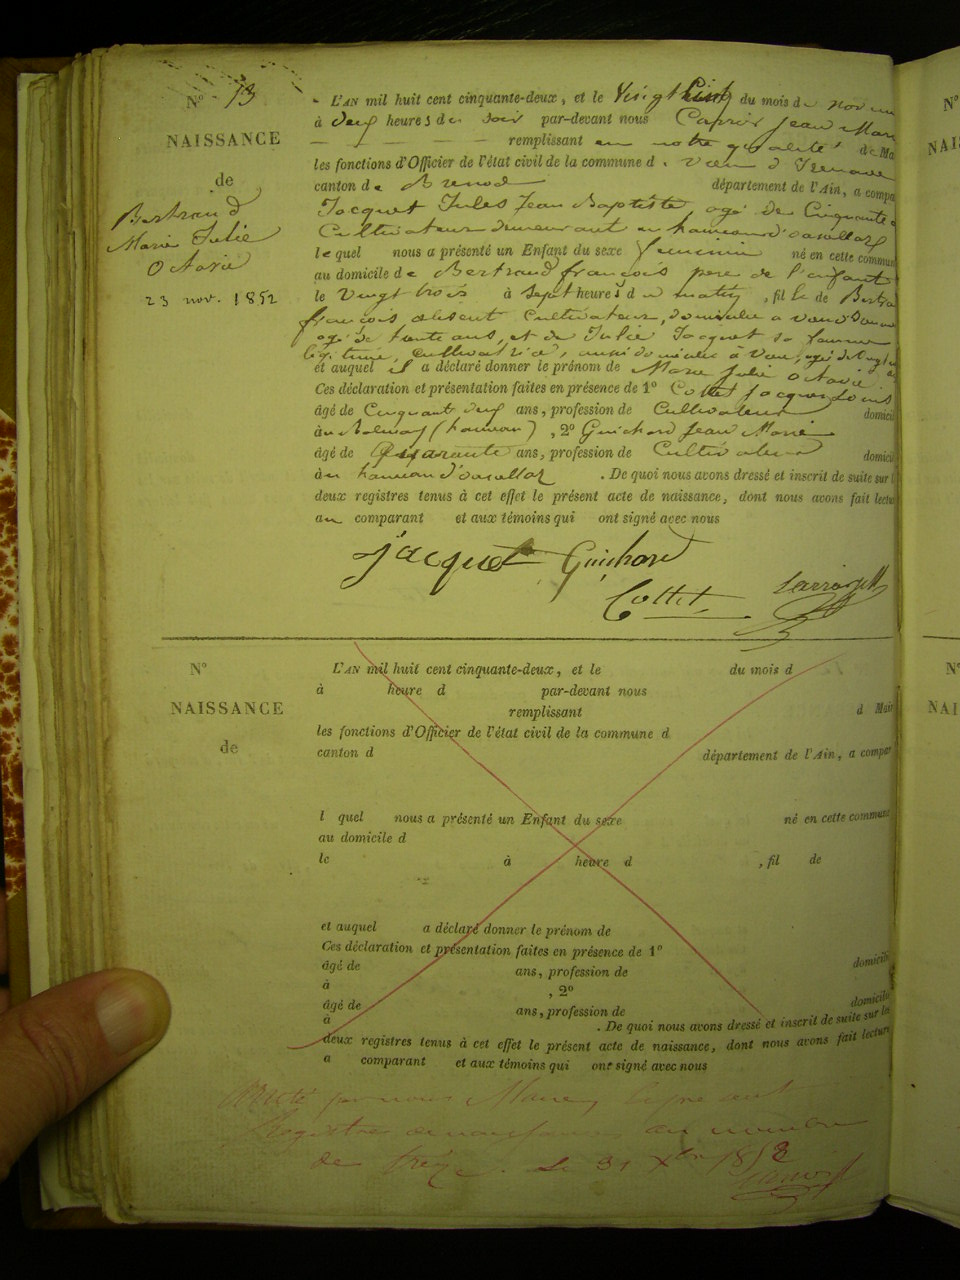 N° 13
NAISSANCE
de
Bertrand
Marie Julie
Octavie
23 nov. 1852
L'AN mil huit cent cinquante-deux, et le Vingt Cinq du mois de
à deux heures du soir par-devant nous Jean Marie
remplissant en notre qualité de Ma
les fonctions d'Officier de l'état civil de la commune de
canton de Brenod département de l'Ain, a compa
Jacquet Jules Jean Baptiste, agé de Cinquante
Cultivateur demeurant au hameau
lequel nous a présenté un Enfant du sexe féminin né en cette commun
au domicile de Bertrand françois pere de l'enfant
le Vingt trois à Sept heures du matin, fille de Bertra
françois absent Cultivateur, domicilié a
agé de trente ans, et de Julie Jacquet sa femme
légitime, Cultivatrice, aussi domiciliée à
et auquel il a déclaré donner le prénom de Marie Julie Octavie
Ces déclaration et présentation faites en présence de 1° Cottet Jacques Louis
âgé de Cinquant deux ans, profession de Cultivateur domicil
au (hameau), 2° Guichard Jean Marie
âgé de Quarante ans, profession de Cultivateur domicil
au hameau . De quoi nous avons dressé et inscrit de suite sur l
deux registres tenus à cet effet le présent acte de naissance, dont nous avons fait lectu
au comparant et aux témoins qui ont signé avec nous
Jacquet Guichard
Cottet
N°
NAISSANCE
de
L'AN mil huit cent cinquante-deux, et le du mois d
à heure d par-devant nous
remplissant d Mair
les fonctions d'Officier de l'état civil de la commune d
canton d département de l'Ain, a compar
l quel nous a présenté un Enfant du sexe né en cette commune
au domicile d
le à heure d , fil de
et auquel a déclaré donner le prénom de
Ces déclaration et présentation faites en présence de 1°
âgé de ans, profession de domicilié
à , 2°
âgé de ans, profession de domicilié
à . De quoi nous avons dressé et inscrit de suite sur les
deux registres tenus à cet effet le présent acte de naissance, dont nous avons fait lecture
a comparant et aux témoins qui ont signé avec nous
par nous Maire
Registre de naissances au nombre
de treize. Le 31 Xbre 1852
N°
NAIS
N°
NAI